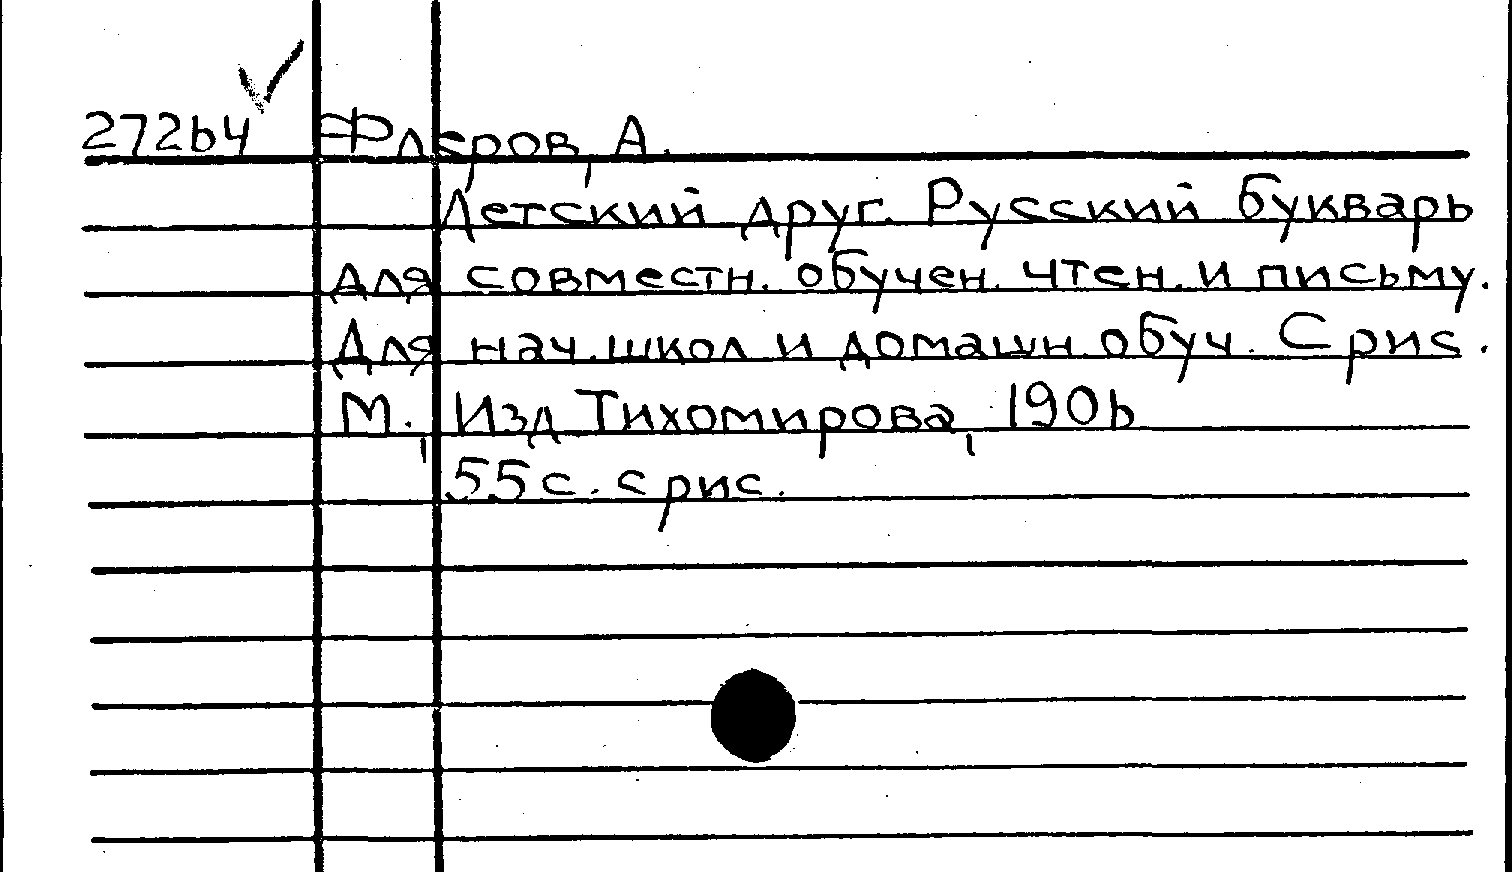 27264 Флеров, А.
Детский друг. Русский букварь
для совместн. обучен. чтен. и письму.
Для нач. школ и домашн. обуч. С рис.
М., Изд Тихомирова, 1906
55 с. с рис.